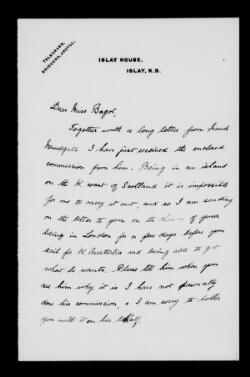 TELEGRAMS,
BRIDGEND, ISLAY.
ISLAY HOUSE,
ISLAY, N.B.
Dear Miss Bagot,
Together with a long letter from Frank
Newdegate I have just received the enclosed
commission from him. Being in an island
on the W. coast of Scotland it is impossible
for me to carry it out, and so I am sending
on the letter to you on the chance of your
being in London for a few days before you
sail for W Australia and being able to get
what he wants. Please tell him when you
see him why it is I have not personally
done his commission, & I am sorry to bother
you with it on his behalf.